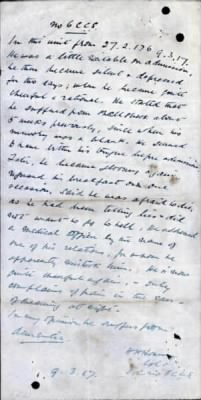 No 6 CCS
In this unit from 27.2.17 to 9.3.17.
He was a little excitable on admission,
he then became silent & depressed
for two days, when he became quite
cheerful & rational. He stated that
he suffered from shellshock about
5 weeks previously, since when his
memory was a blank. He seemed
to have with his
Later, he became
refused his breakfast on one
occasion, said he was afraid to die,
as he had been telling lies & did
not want to go to hell. He addressed
a medical officer by the name of
one of his relations, for whom he
apparently mistook him. He is now
quite cheerful again, - only
complains of pain in the
of
In my opinion he suffers from

9.3.17.